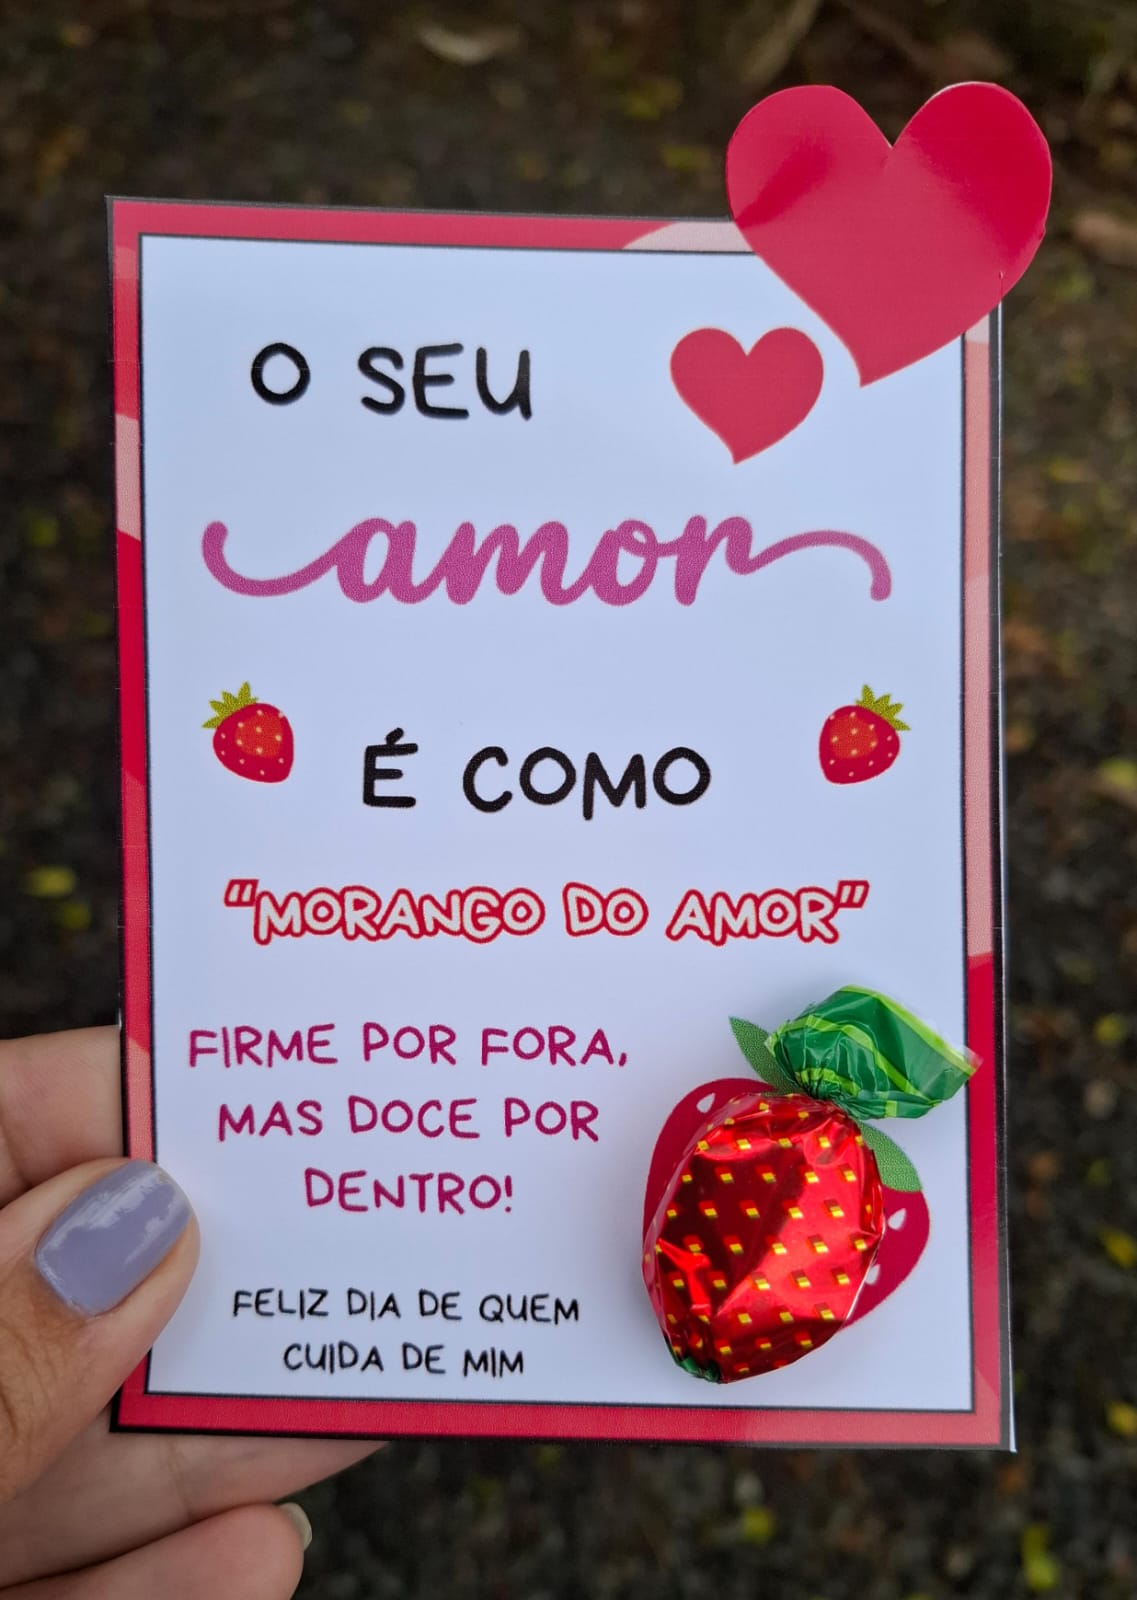 O SEU
amor
É COMO
"MORANGO DO AMOR"
FIRME POR FORA,
MAS DOCE POR
DENTRO!
FELIZ DIA DE QUEM
CUIDA DE MIM